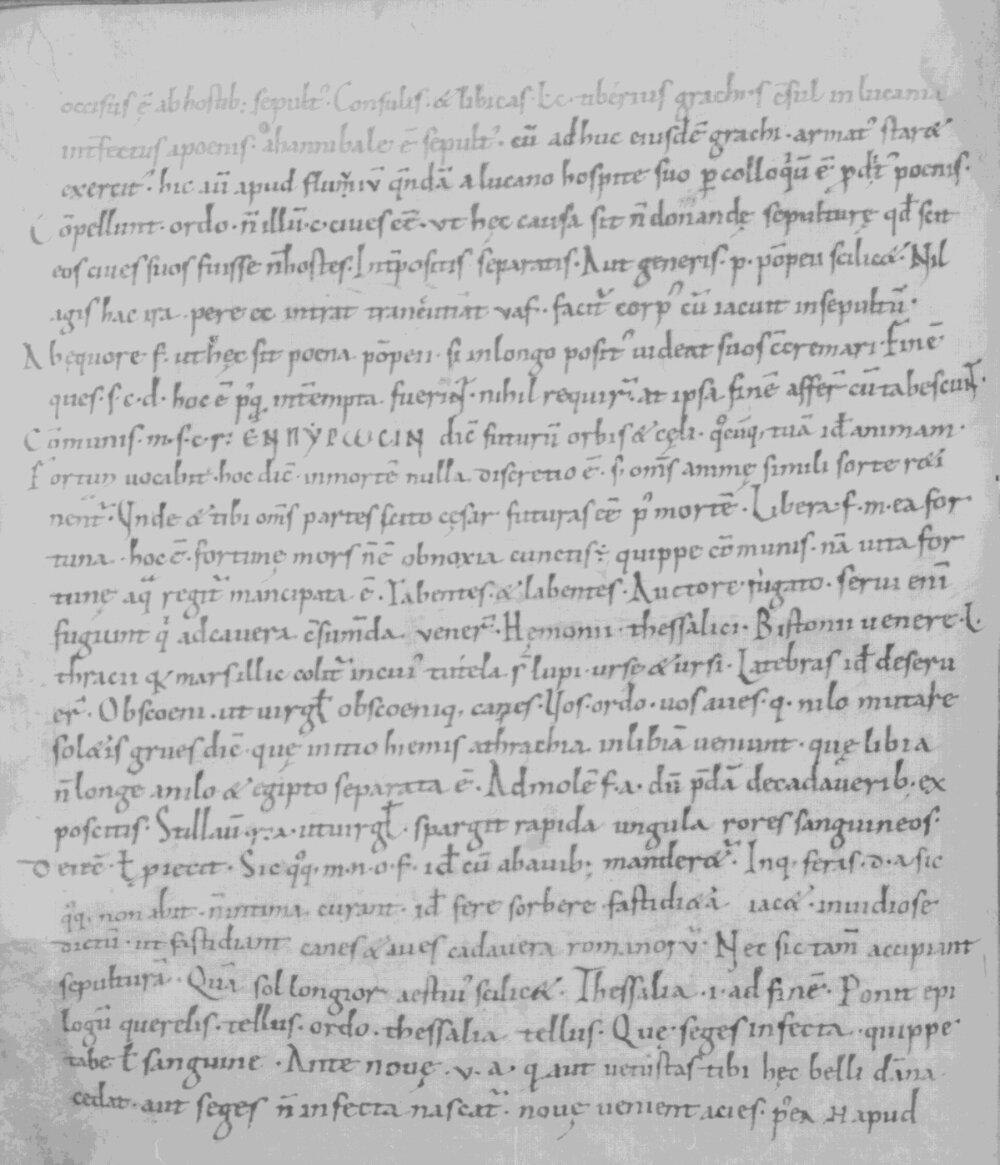 occisus ē ab hostib; sepult᾽. Consulis. & libicas. Ec. tiberius grachus c̄sul in lucania
intfectus a poenis. a hannibale ē sepult᾽. cū adhuc eiusdē grachi. armat᾽ staret
exercit᾽. hic aū apud flum̄ qndā a lucano hospite suo p colloqū ē pdit᾽ poenis.
Cōpellunt. ordo. n̄ illū. c. ciues eē. vt hęc causa sit n̄ donandę sepulturę qđ scit
eos ciues suos fuisse n̄ hostes. Intpositis separatis. Aut generis. p. pōpeii scilic&. Nil
agis hac ira. pere ec intrat vaf. facit᾽ corp᾽ cū iacuit insepultū.
Ab ęquore f. ut hęc sit poena pōpeii. si in longo posit᾽ uideat suos ccremari. Finē
ques. s. c. d. hoc ē p᾽q. intēmpta fuerint. nihil requir᾽. at ipsa finē affer᾽ cū tabescunt.
Cōmunis. m. s. c. r. ΕΝΠΥΡωCΙΝ dic̄ futurū orbis & cęli. qcūq, tuā iđ animam.
Fortun uocabit. hoc dic̄ in mortē nulla discretio ē. s. om̄s animę simili sorte r&i
nent᾽. Vnde & tibi om̄s partes scito cęsar futuras eē p᾽ mortē. Libera. f. m. ea for
tuna. hoc ē. fortunę mors n̄ ē obnoxia cunctis: quippe cōmunis. nā uita for
tunę a q regit᾽ mancipata ē. Tabentes. & labentes. Auctore fugato. serui eni
fugiunt q ad cauera c̄sum̄da vener᾽. Hęmonii. thessalici. Bistonii uenere. L
thracii q mars illic colit᾽ in cui᾽ tutela s᾽ lupi. urse & ursi. Latebras iđ deseru
er᾽. Obscoeni. ut uirgł obscoeniq, canes. Vos. ordo. uos aues. q. nilo mutare
sol&is grues dic̄ quę initio hiemis a thrachia in libiā ueniunt. quę libia
n̄ longe a nilo & egipto separata ē. Ad molē f. a. dū pdā de cadauerib, ex
poscitis. Stillaū q. a. ut uirgł. spargit rapida ungula rores sanguineos.
Deiec̄. ł piecit. Sic qq. m. n. o. f. iđ cū ab auib; mander&᾽. Inq. feras. d. a. sic
qq. non abit. n̄ intima curant. iđ fere sorbere fastidi&a iac&. inuidiose
dictū. ut fastidiant canes & aues cadauera romanorū. Nec sic tam̄ accipiant
sepulturā. Quā sol longior aestiu᾽ scilic&. Thessalia. i. ad finē. Ponit epi
logū querelis. tellus. ordo. thessalia tellus. Que seges infecta. quippe
tabe ł sanguine. Ante nouę. v. a. q aut uetustas tibi hęc belli dāna
cedat. aut seges n̄ infecta nascat᾽. nouę uenient acies. p᾽ea H apud